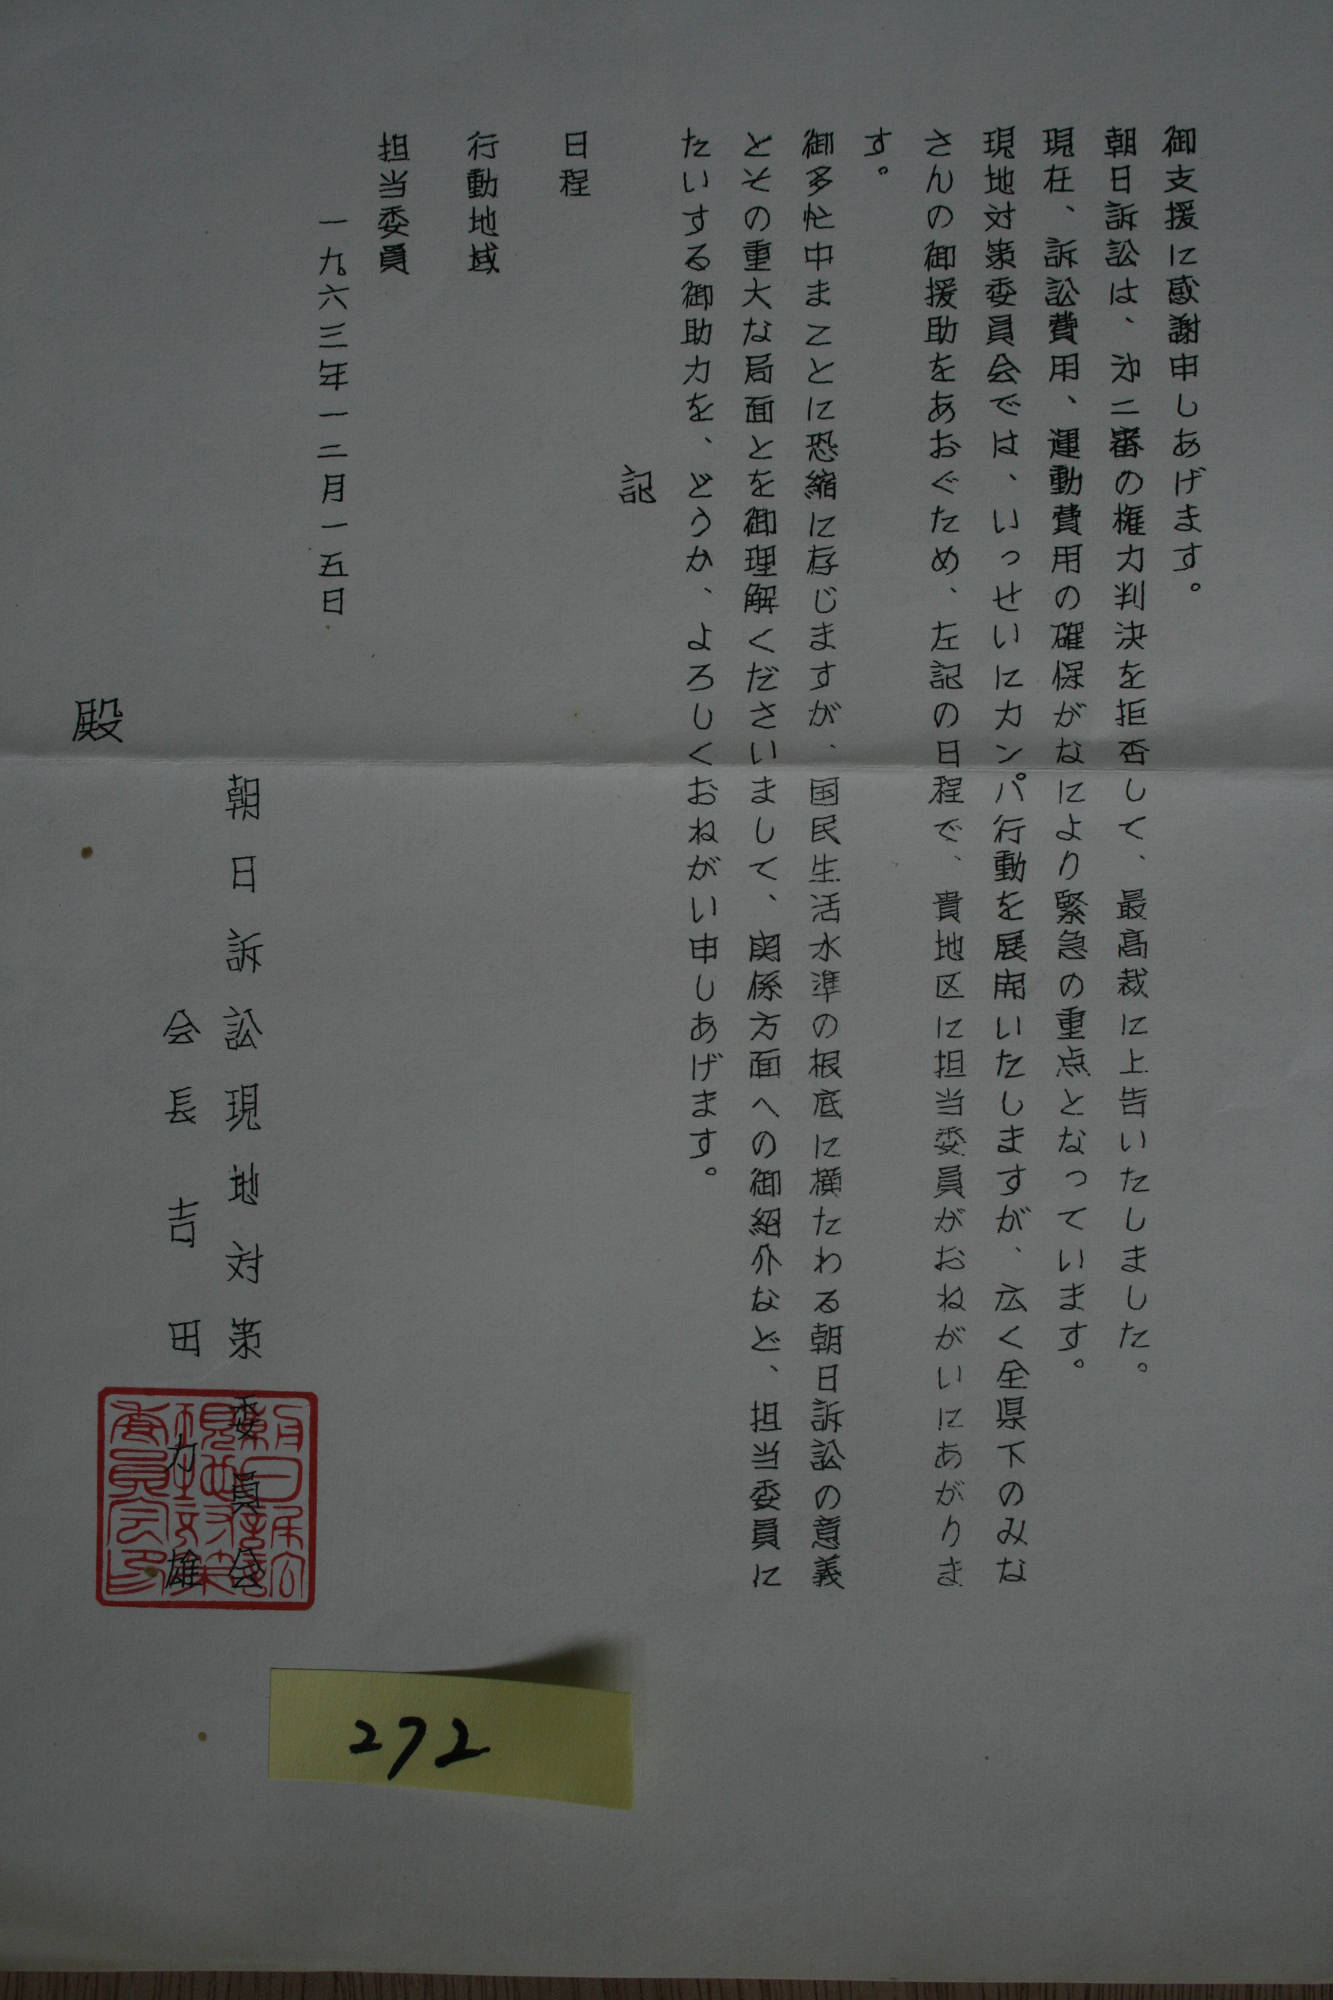 御支援に感謝申しあげます。
朝日訴訟は、㐧二審の権力判決を拒否して、最高裁に上告いたしました。
現在、訴訟費用、運動費用の確保がなにより緊急の重点となっています。
現地対策委員会では、いっせいにカンパ行動を展開いたしますが、広く全県下のみな
さんの御援助をあおぐため、左記の日程で、貴地区に担当委員がおねがいにあがりま
す。
御多忙中まことに恐縮に存じますが、国民生活水準の根底に横たわる朝日訴訟の意義
とその重大な局面とを御理解くださいまして、関係方面への御紹介など、担当委員に
たいする御助力を、どうか、よろしくおねがい申しあげます。
記
日程
行動地域
担当委員
一九六三年一二月一五日
朝日訴訟現地対策委員会
会長 吉田力雄
殿
朝日訴訟
現地対策
委員会印
272